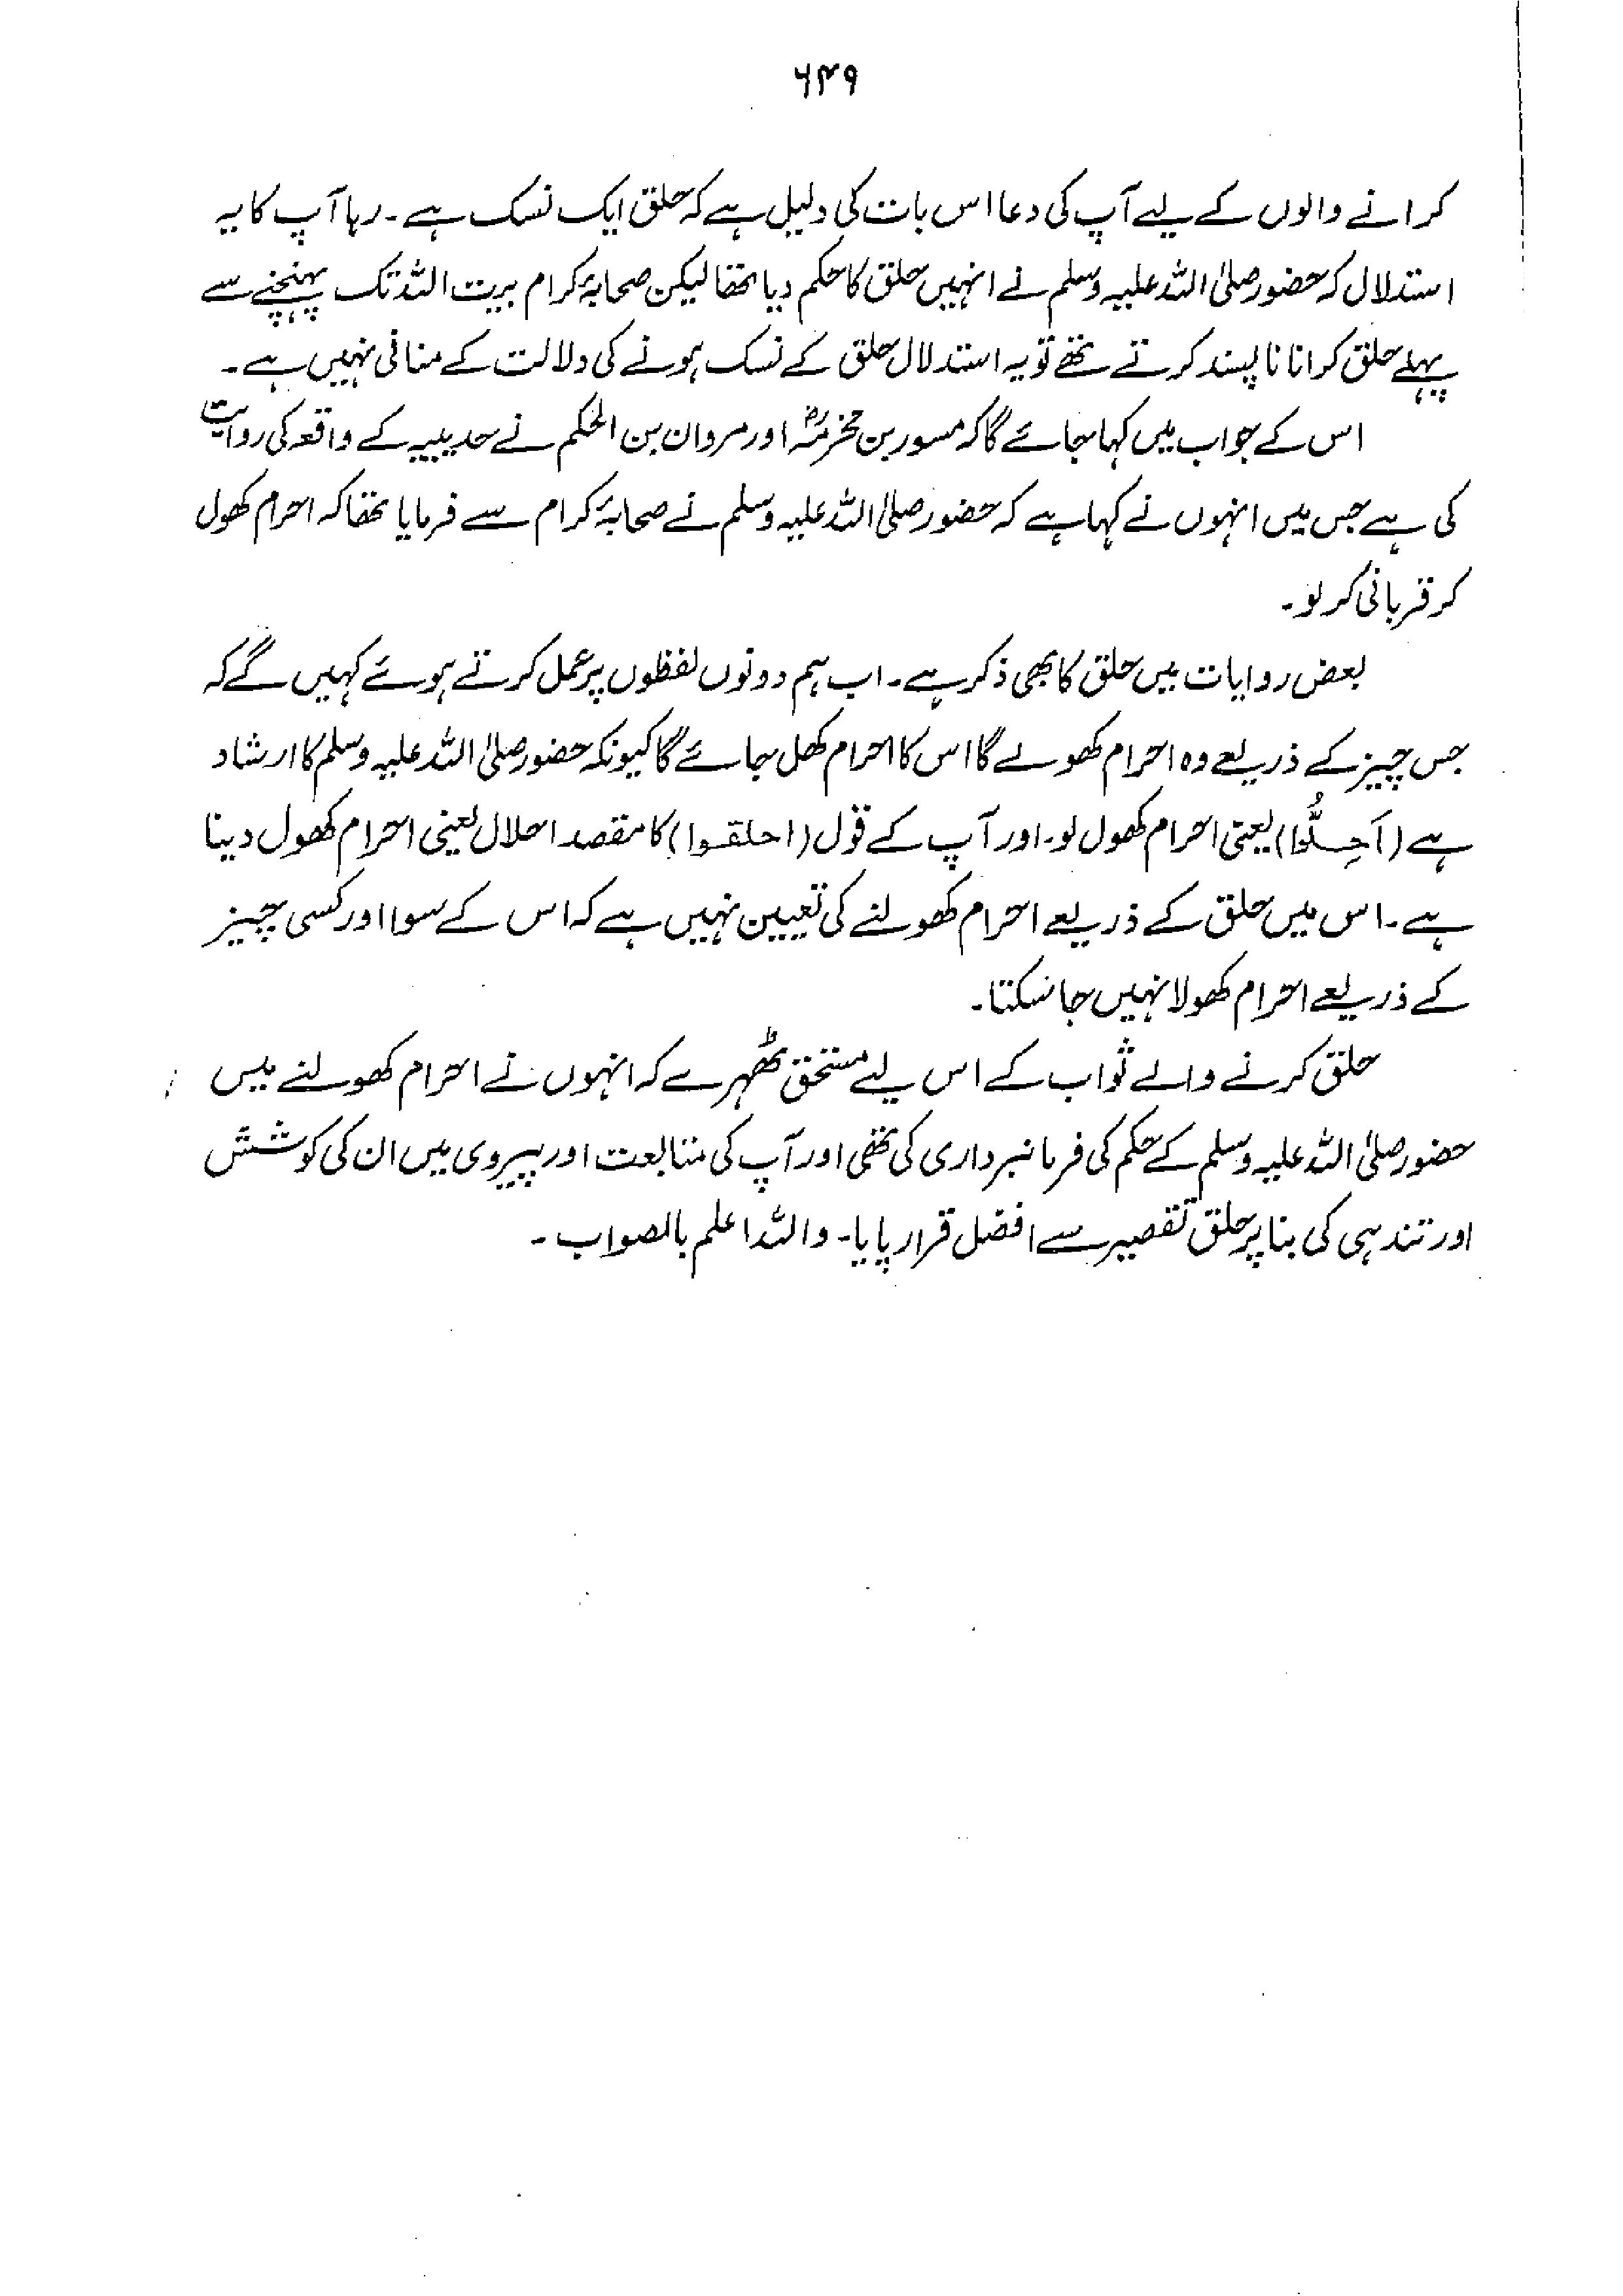 ۶۴۹
کرانے والوں کے لیے آپ کی دعا اس بات کی دلیل ہے کہ حلق ایک نسک ہے۔ رہا آپ کا یہ
استدلال کہ حضور صلی اللہ علیہ وسلم نے انہیں حلق کا حکم دیا تھا لیکن صحابۂ کرام بیت اللہ تک پہنچنے سے
پہلے حلق کرانا ناپسند کرتے تھے تو یہ استدلال حلق کے نسک ہونے کی دلالت کے منافی نہیں ہے۔
اس کے جواب میں کہا جائے گا کہ مسور بن مخرمہؓ اور مروان بن الحکم نے حدیبیہ کے واقعہ کی روایت
کی ہے جس میں انہوں نے کہا ہے کہ حضور صلی اللہ علیہ وسلم نے صحابۂ کرام سے فرمایا تھا کہ احرام کھول
کر قربانی کر لو۔
بعض روایات میں حلق کا بھی ذکر ہے۔ اب ہم دونوں لفظوں پر عمل کرتے ہوئے کہیں گے کہ
جس چیز کے ذریعے وہ احرام کھولے گا اس کا احرام کھل جائے گا کیونکہ حضور صلی اللہ علیہ وسلم کا ارشاد
ہے (اَحِلُّوا) یعنی احرام کھول لو۔ اور آپ کے قول (احلقوا) کا مقصد احلال یعنی احرام کھول دینا
ہے۔ اس میں حلق کے ذریعے احرام کھولنے کی تعیین نہیں ہے کہ اس کے سوا اور کسی چیز
کے ذریعے احرام کھولا نہیں جا سکتا۔
حلق کرنے والے ثواب کے اس لیے مستحق ٹھہرے کہ انہوں نے احرام کھولنے میں
حضور صلی اللہ علیہ وسلم کے حکم کی فرمانبرداری کی تھی اور آپ کی متابعت اور پیروی میں ان کی کوشش
اور تندہی کی بنا پر حلق تقصیر سے افضل قرار پایا۔ واللہ اعلم بالصواب۔